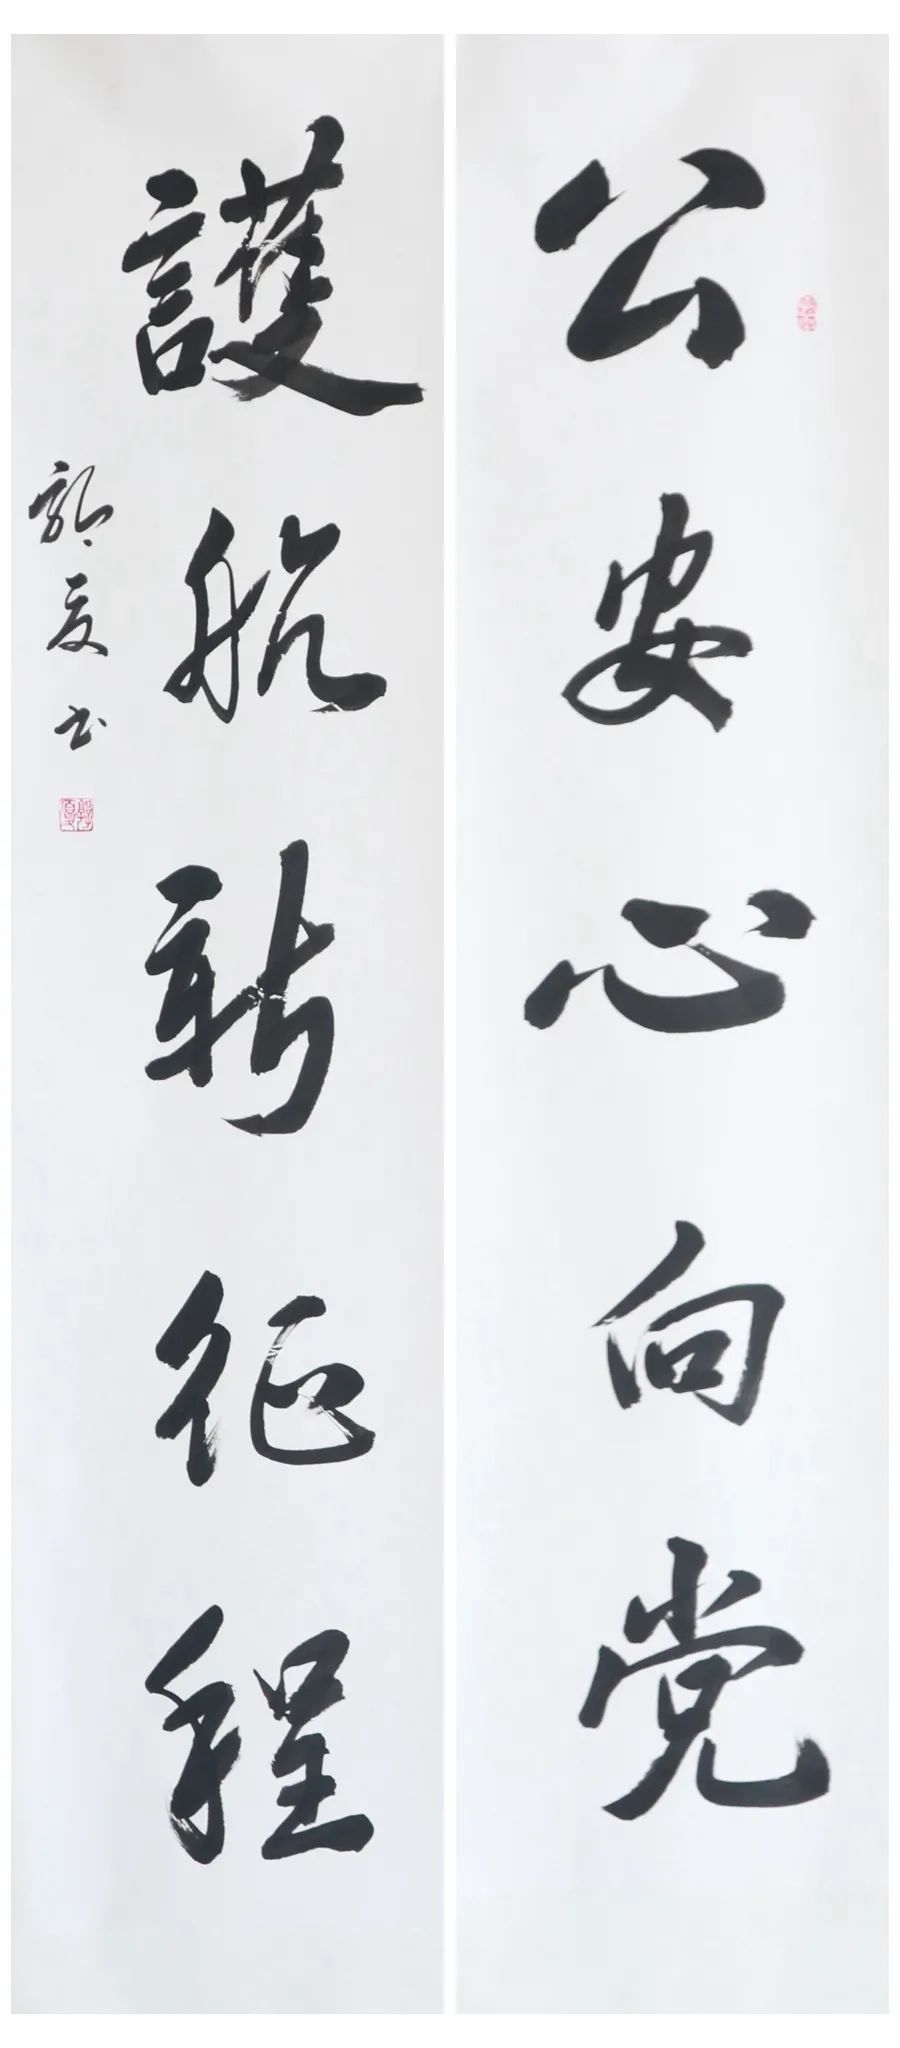 公安心向党
護航新征程
郭夏书